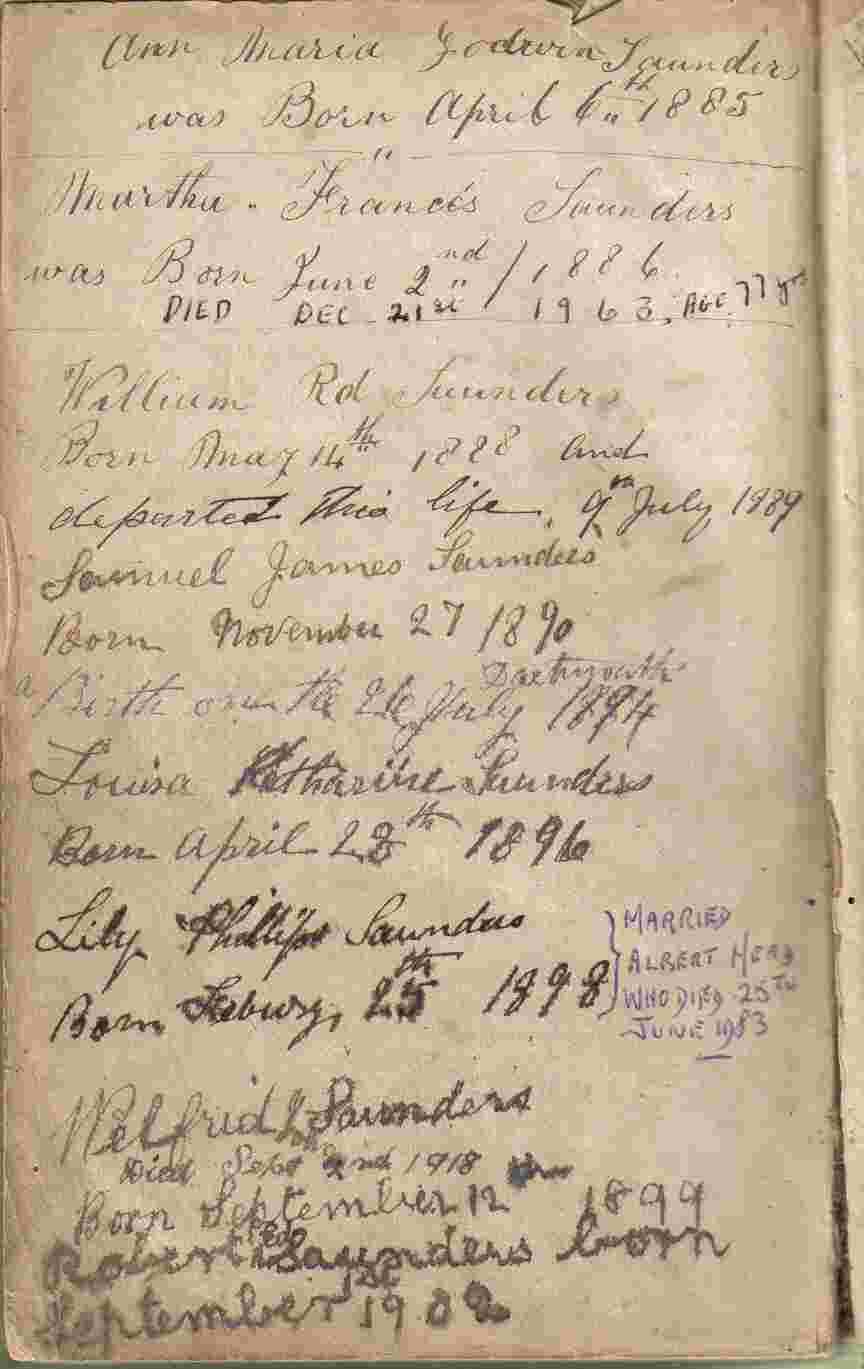 Ann Maria Godwin Saunders
was Born April 6th 1885
"
Martha. Francis Saunders
was Born June 2nd / 1886.
DIED DEC 21st 1963, AGE 77 yrs
William Rd Saunders
Born May 14th 1888 and
departed this life, 9th July 1889
Samuel James Saunders
Born November 27 1890
Dartmouth
a Birth on the 26 July 1894
Louisa Katharine Saunders
Born April 28th 1896
Lily Phillips Saunders
Born Febury, 25th 1898
MARRIED
ALBERT HEAD
WHO DIED 25TH
JUNE 1983
Wilfrid Saunders
Died Sept 2nd 1918
Born September 12 1899
Robert Ed Saunders born
September 1st 1902